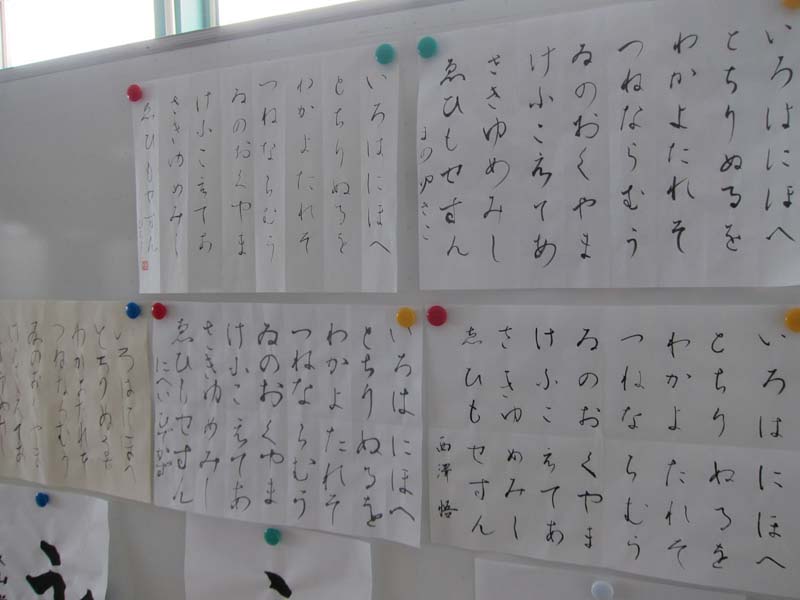 いろはにほへ
とちりぬるを
わかよたれそ
つねならむう
ゐのおくやま
けふこえてあ
さきゆめみし
ゑひもせすん
いろはにほへ
とちりぬるを
わかよたれそ
つねならむう
ゐのおくやま
けふこえてあ
さきゆめみし
ゑひもせすん
いろはにほへ
とちりぬるを
わかよたれそ
つねならむう
ゐのおくやま
けふこえてあ
さきゆめみし
ゑひもせすん
西澤悟
いろはにほへ
とちりぬるを
わかよたれそ
つねならむう
ゐのおくやま
けふこえてあ
さきゆめみし
ゑひもせすん
いろはにほへ
とちりぬるを
わかよたれそ
つねならむう
ゐのおくやま